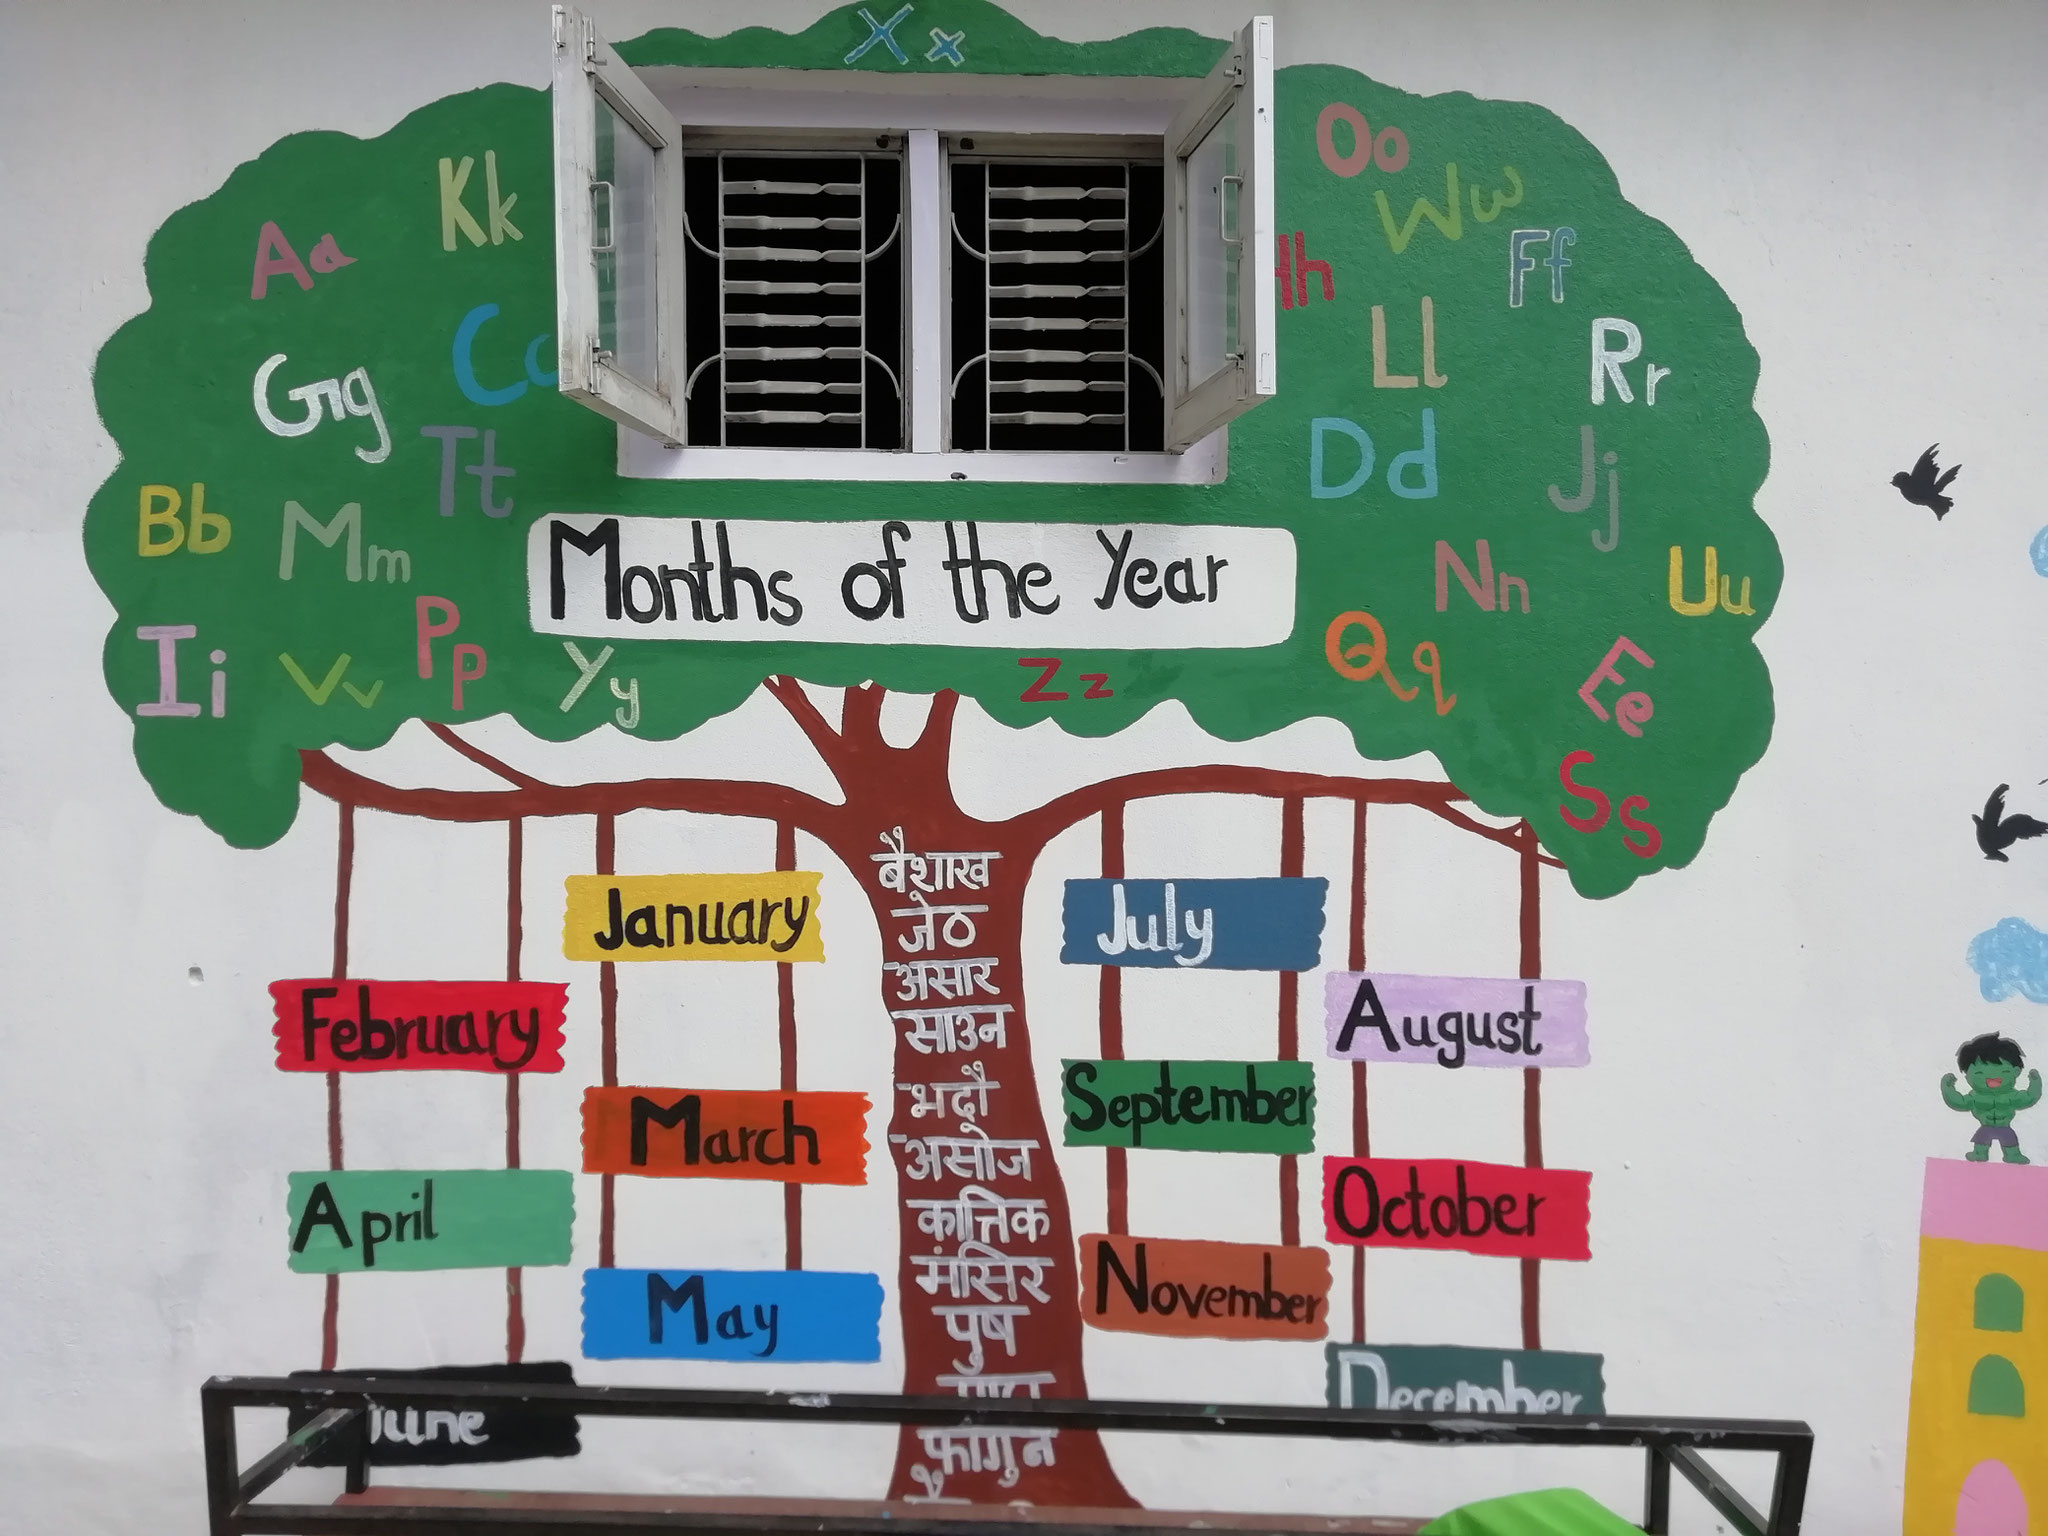 X x
Kk
Oo
Ww
Aa
Hh
Ff
Cc
Ll
Rr
Gg
Tt
Dd
Jj
Bb
Mm
Months of the Year
Nn
Uu
Pp
Ii
Vv
Yy
Zz
Qq
Ee
Ss
January
February
March
April
May
June
बैशाख
जेठ
असार
साउन
भदौ
असोज
कात्तिक
मंसिर
पुष
फागुन
July
August
September
October
November
December